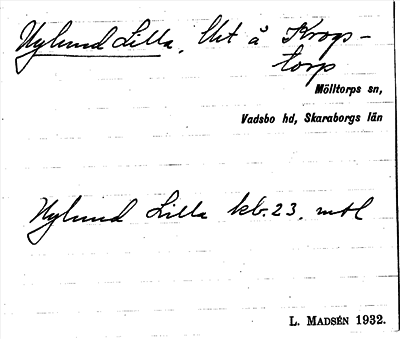 Nylund Lilla, Utt å Krops-
torp
Mölltorps sn,
Vadsbo hd, Skaraborgs län
Nylund Lilla kb. 23. mtl
L. MADSÉN 1932.